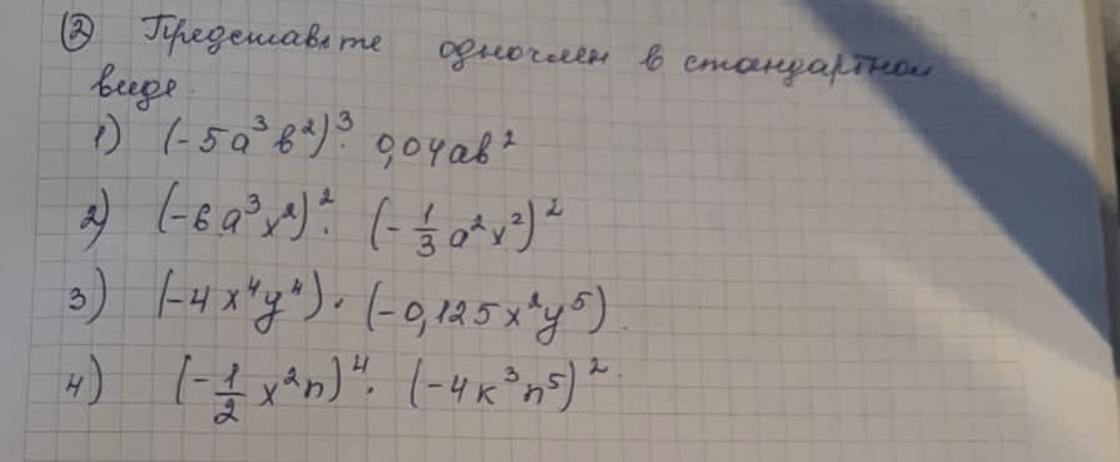 ② Представьте одночлен в стандартном
виде.
1) (-5a³b²)³ · 0,04ab²
2) (-6a³x²)² · (-1/3 a²x²)²
3) (-4x⁴y⁴) · (-0,125x²y⁵).
4) (-1/2 x²n)⁴ · (-4к³n⁵)².